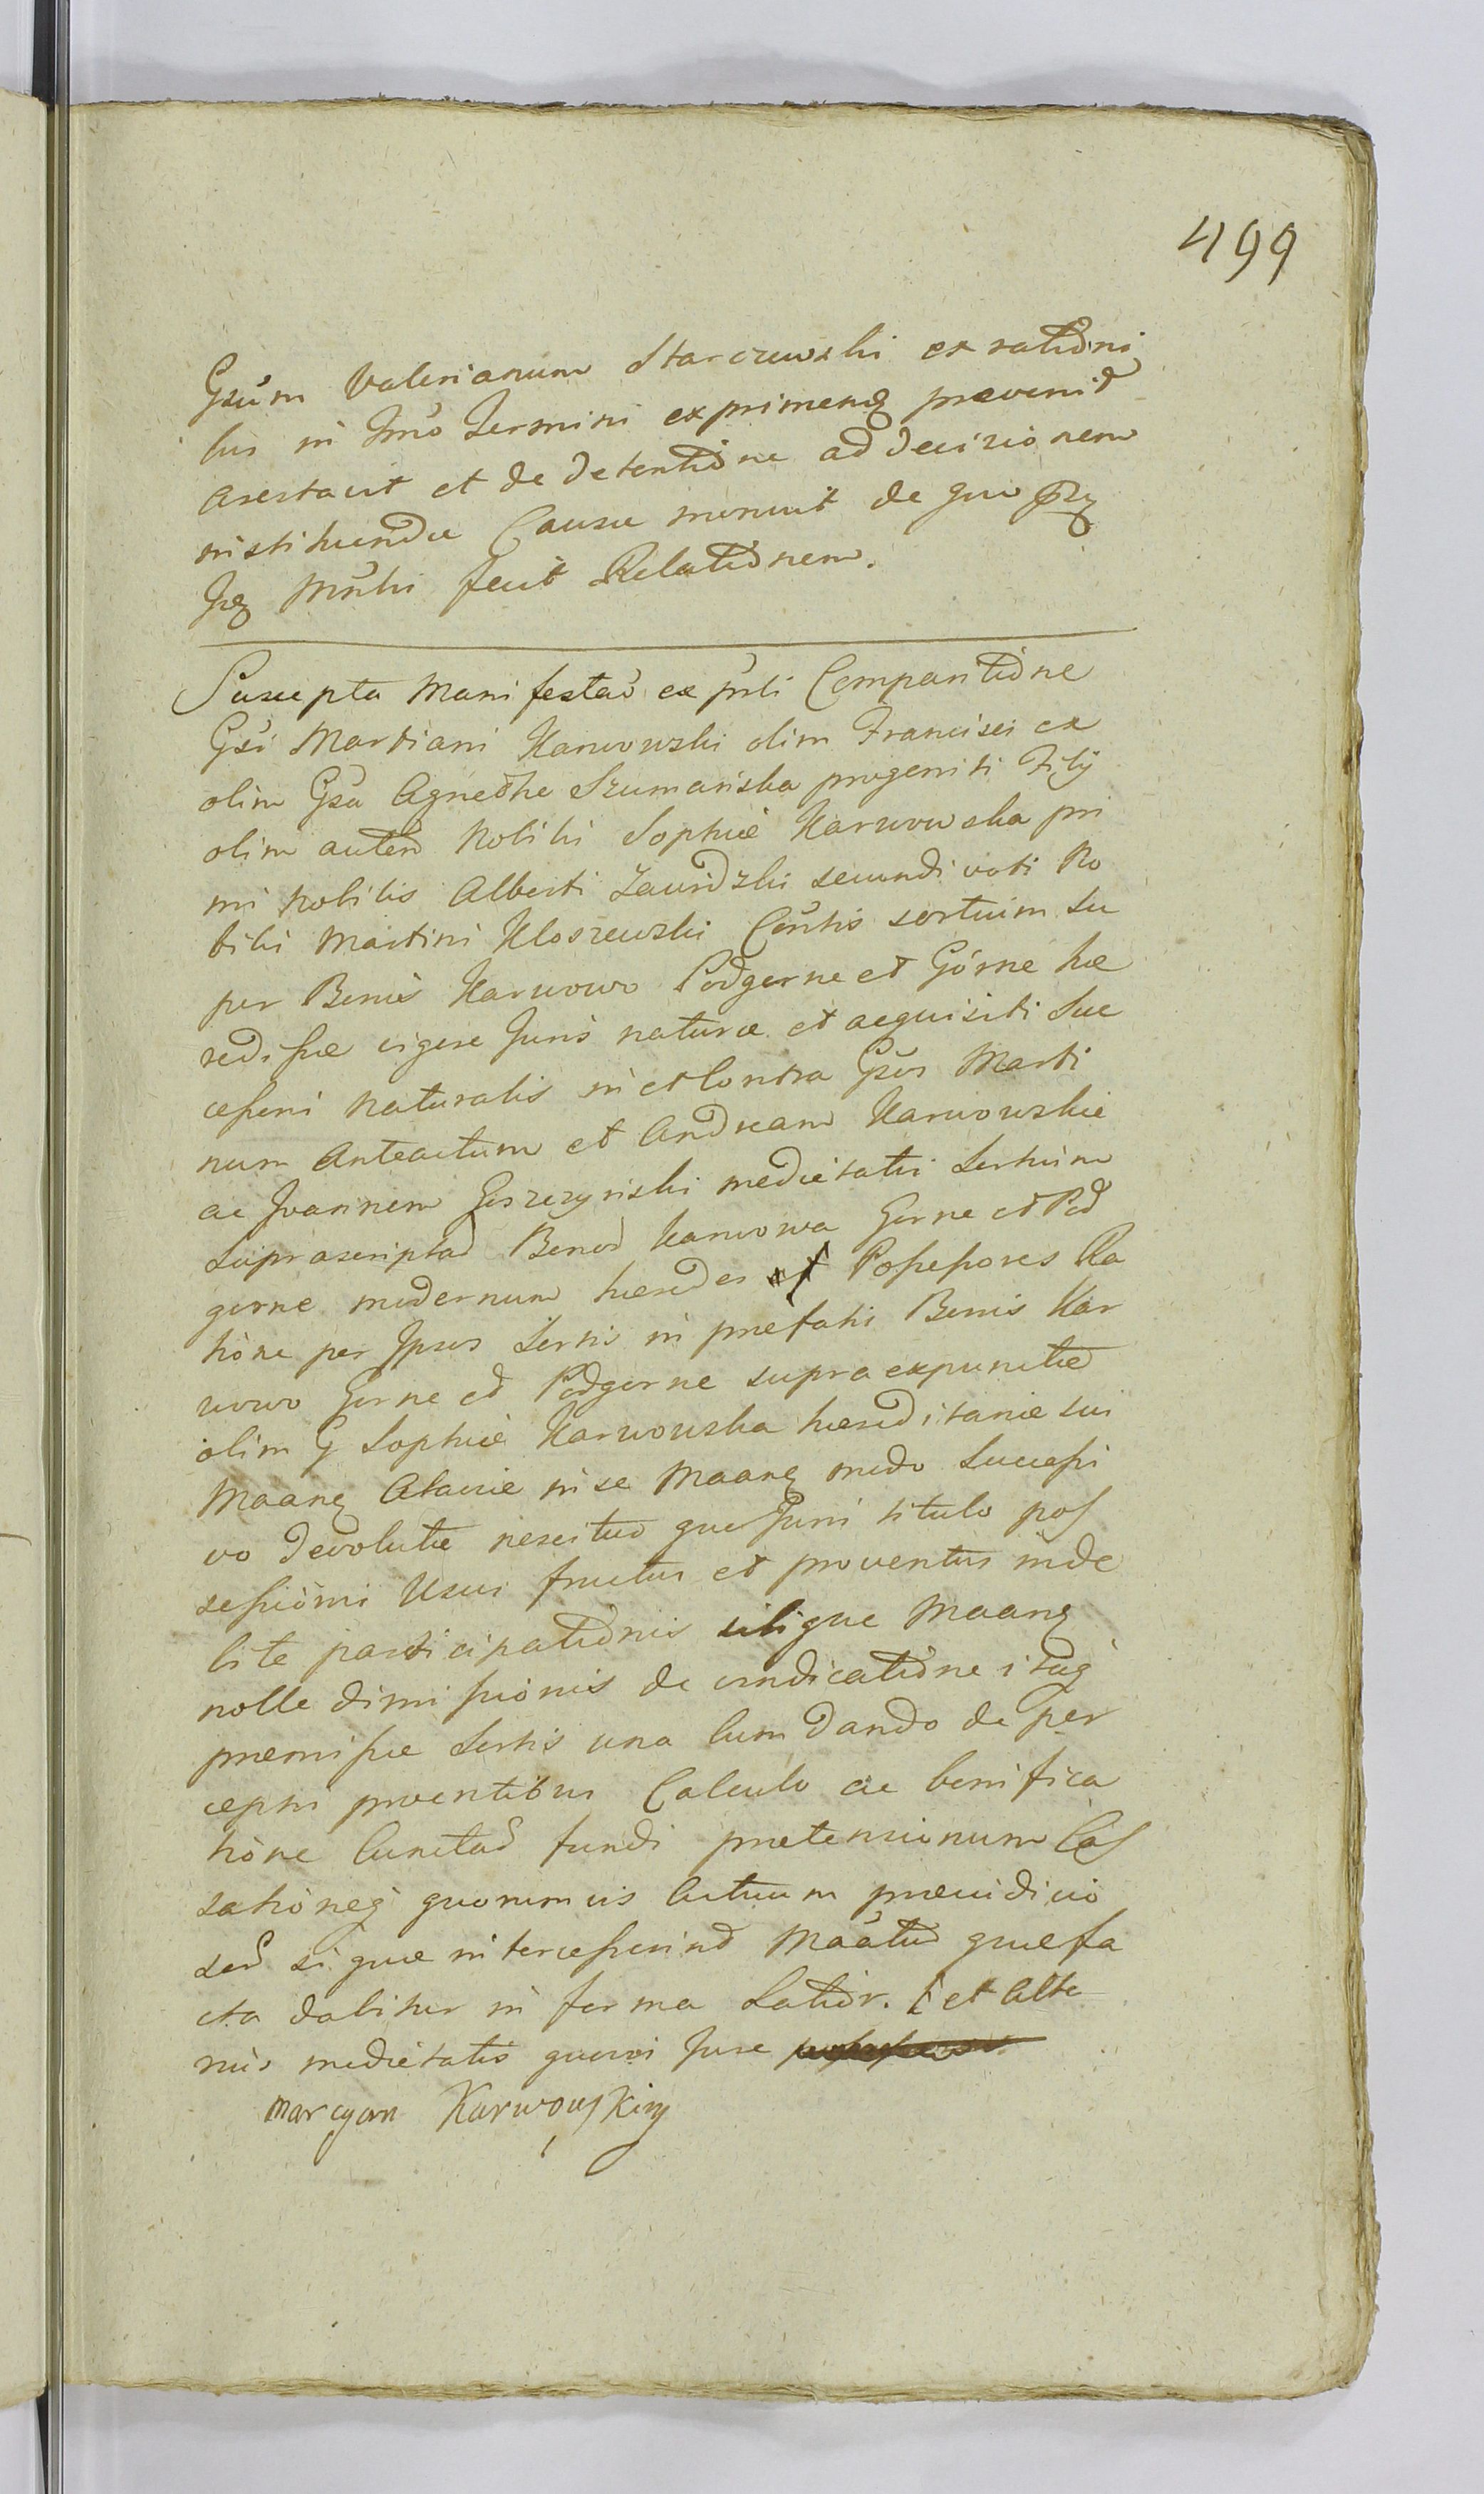 499
Gsum Valerianum Starczewski ex rationi
bus in Imo Termini exprimend prævenit
arestavit et de detentione ad decisionem
instituendæ Causæ monuit de quo
Ipse Mnlis fecit Relationem.
Suscepta Manifestao ex prli Comparitione
Gsi Martiani Karwowski olim Francisci ex
olim Gsa Agnethe Szumańska progeniti Filij
olim autem Nobilis Sophiæ Karwowska pri
mi Nobilis Alberti Zawidzki secundi voti No
bilis Martini Kloszewski Contis sortium su
per Bonis Karwowo Podgorne et Górne hæ
redissæ vigore Juris naturæ et acquisiti Suc
cessoris Naturalis in et Contra Gsos Marti
num Anteactum et Andream Karwowskie
ac Joannem Goszczynski medietatis Sortium
Suprascriptad Bonod Karwowa Gorne et Pod
gorne modernum hæredes et Possessores Ra
tione per Ipsos Sortis in præfatis Bonis Kar
wowo Gorne et Podgorne supra expunctæ
olim G Sophiæ Karwowska hæreditariæ sui
Maang Ataviæ in se Maang modo Successi
vo devolutæ nescitur quo Juris titulo pos
sessionis Usus fructus et proventus inde
lite participationis sibique Maang
nolle dimissionis de vindicatione itaq
præmissæ Sortis una Cum dando de per
ceptis proventibus Calculo ac bonifica
tione Cunctad fundi prætensionum Cas
sationeq quorumvis Actuum præiudicio
sad si quæ intercesserind Maatud quæ fa
cta dabitur in forma Latior. [et Alte
riùs medietatis quovi Jure
Marcyan Karwowski mp